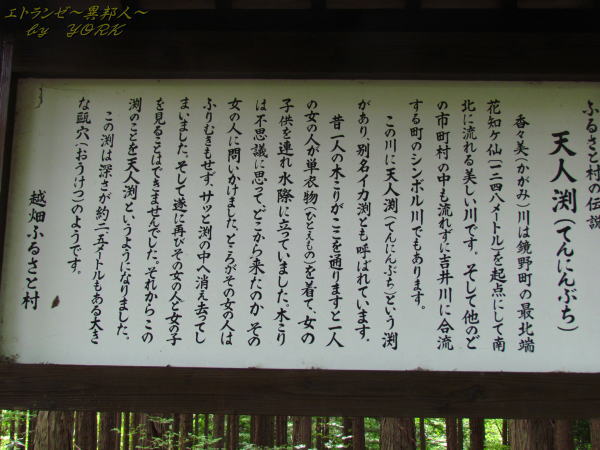 エトランゼ~異邦人~
by YORK
ふるさと村の伝説
天人渕(てんにんぶち)
香々美(かがみ)川は鏡野町の最北端
花知ケ仙(一二四八メートル)を起点にして南
北に流れる美しい川です。そして他のど
の市町村の中も流れずに吉井川に合流
する町のシンボル川でもあります。
この川に天人渕(てんにんぶち)という渕
があり、別名イカ渕とも呼ばれています。
昔一人の木こりがここを通りますと一人
の女の人が単衣物(ひとえもの)を着て、女の
子供を連れ水際に立っていました。木こり
は不思議に思って、どこから来たのか その
女の人に問いかけました。ところがその女の人は
ふりむきもせず、サッと渕の中へ消え去ってし
まいました。そして遂に再びその女の人と女の子
を見ることはできませんでした。それからこの
渕のことを天人渕というようになりました。
この渕は深さが約二五メートルもある大き
な甌穴(おうけつ)のようです。
越畑ふるさと村